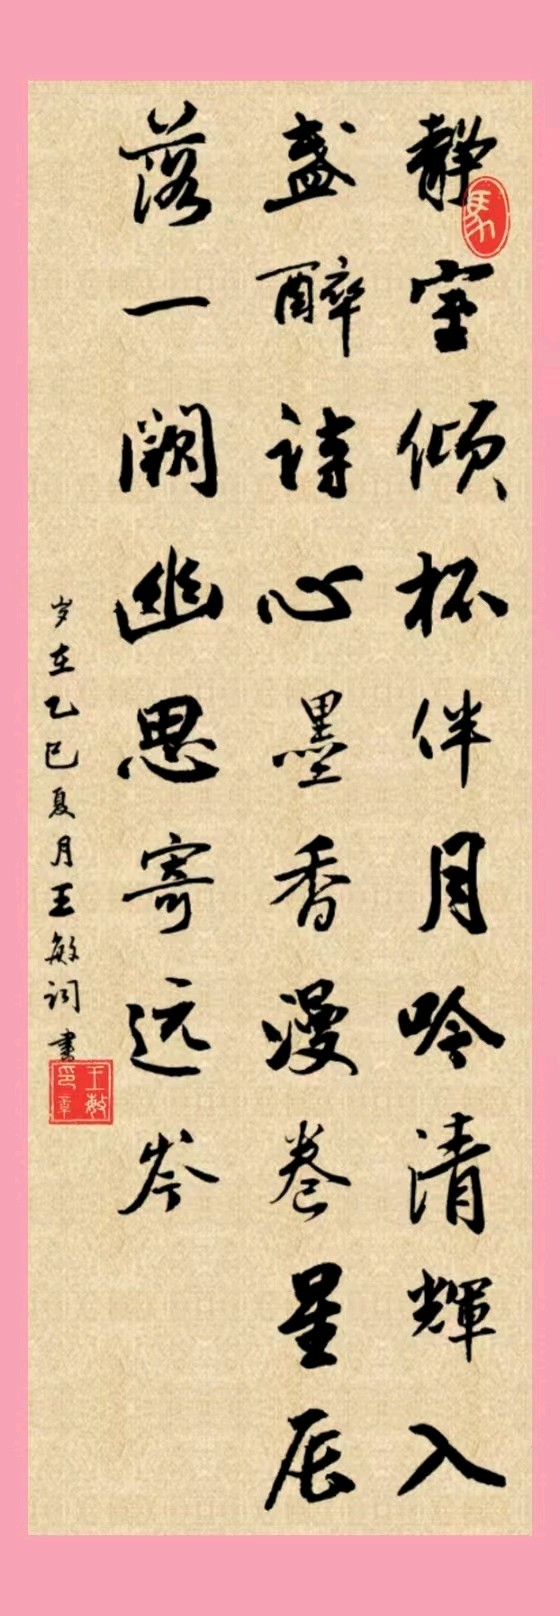 静室倾杯伴月吟清輝入
盏醉诗心墨香漫卷星辰
落一阙幽思寄远岑
岁在乙巳夏月王敏词书
馬
王敏印章